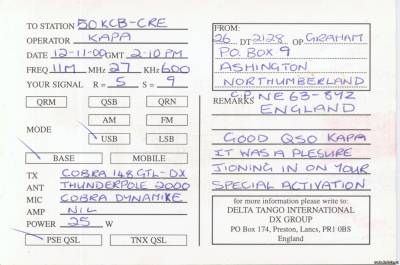 TO STATION 50KCB-CRE
OPERATOR KAPA
DATE 12-11-00 GMT 2-10 PM
FREQ 11M MHz 27 KHz 600
YOUR SIGNAL R = 5 S = 9
QRM QSB QRN
AM FM
MODE
USB LSB
BASE MOBILE
TX COBRA 148 GTL-DX
ANT THUNDERPOLE 2000
MIC COBRA DYNAMIKE
AMP NIL
POWER 25 W
PSE QSL TNX QSL
FROM:
26 DT 2128 OP GRAHAM
P.O. BOX 9
ASHINGTON
NORTHUMBERLAND
C.P. NE63-8YZ
REMARKS ENGLAND
GOOD QSO KAPA
IT WAS A PLESURE
JIONING IN ON YOUR
SPECIAL ACTIVATION
for more information please write to:
DELTA TANGO INTERNATIONAL
DX GROUP
PO Box 174, Preston, Lancs, PR1 0BS
England